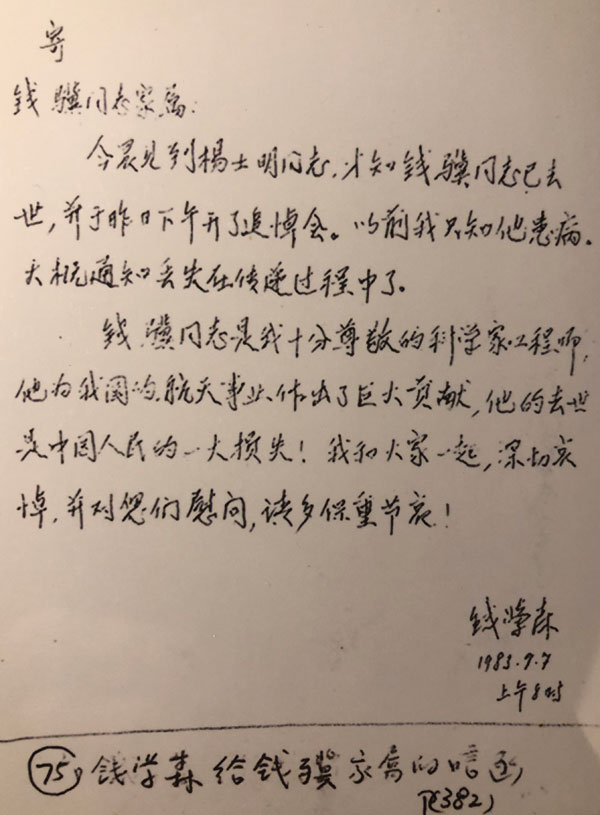 寄
钱骥同志家属：
今晨见到杨士明同志，才知钱骥同志已去
世，并于昨日下午开了追悼会。以前我只知他患病。
大概通知丢失在传递过程中了。
钱骥同志是我十分尊敬的科学家工程师，
他为我国的航天事业作出了巨大贡献，他的去世
是中国人民的一大损失！我和大家一起，深切哀
悼，并对您们慰问，请多保重节哀！
钱学森
1983.9.7
上午8时
75，钱学森给钱骥家属的唁函
P(382)